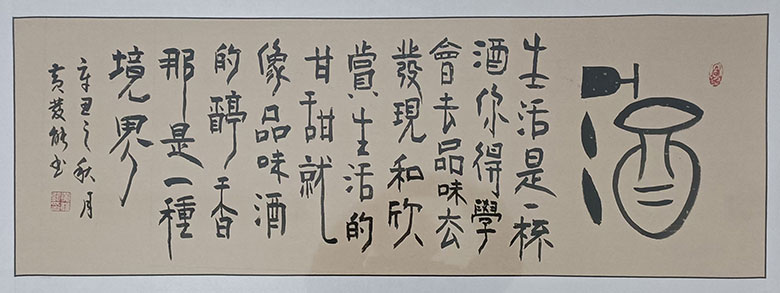 酒
生活是一杯
酒你得學
會去品味去
發現和欣
賞生活的
甘甜就
像品味酒
的醇香
那是一種
境界
辛丑之秋月
黄發能书